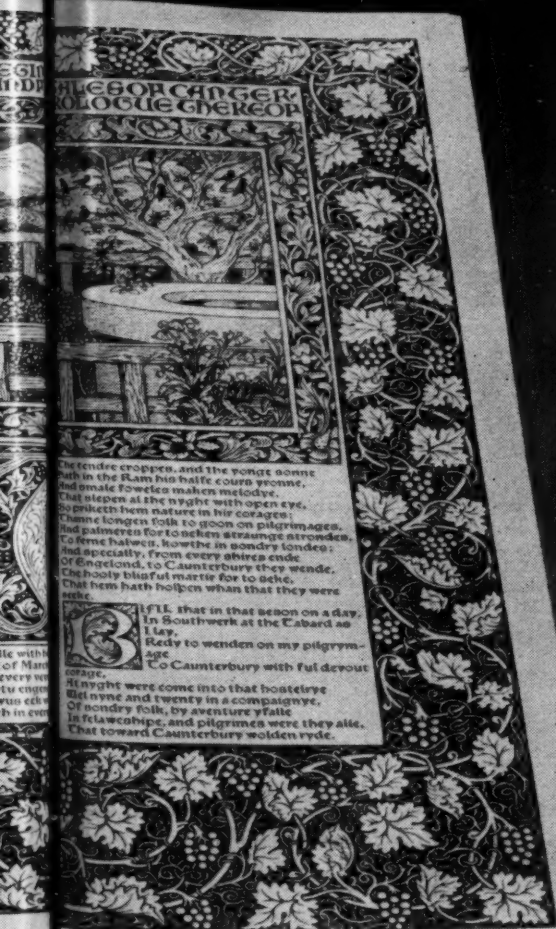 EGIN
ALES OF CANTER
ROLOGUE THEREOF
The tendre croppes, and the yonge sonne
Hath in the Ram his halfe cours yronne,
And smale foweles maken melodye,
That slepen al the nyght with open eye,
So priketh hem nature in hir corages;
Thanne longen folk to goon on pilgrimages,
And palmeres for to seken straunge strondes,
To ferne halwes, kowthe in sondry londes;
And specially, from every shires ende
Of Engelond, to Caunterbury they wende,
The hooly blisful martir for to seke,
That hem hath holpen whan that they were
seeke.
BIFIL that in that seson on a day,
In Southwerk at the Tabard as
I lay,
Redy to wenden on my pilgrym-
age
To Caunterbury with ful devout
corage,
At nyght were come into that hostelrye
Wel nyne and twenty in a compaignye,
Of sondry folk, by aventure yfalle
In felaweshipe, and pilgrimes were they alle,
That toward Caunterbury wolden ryde.
lle with
of Mar
every vey
tu engen
rus eek w
th in ever